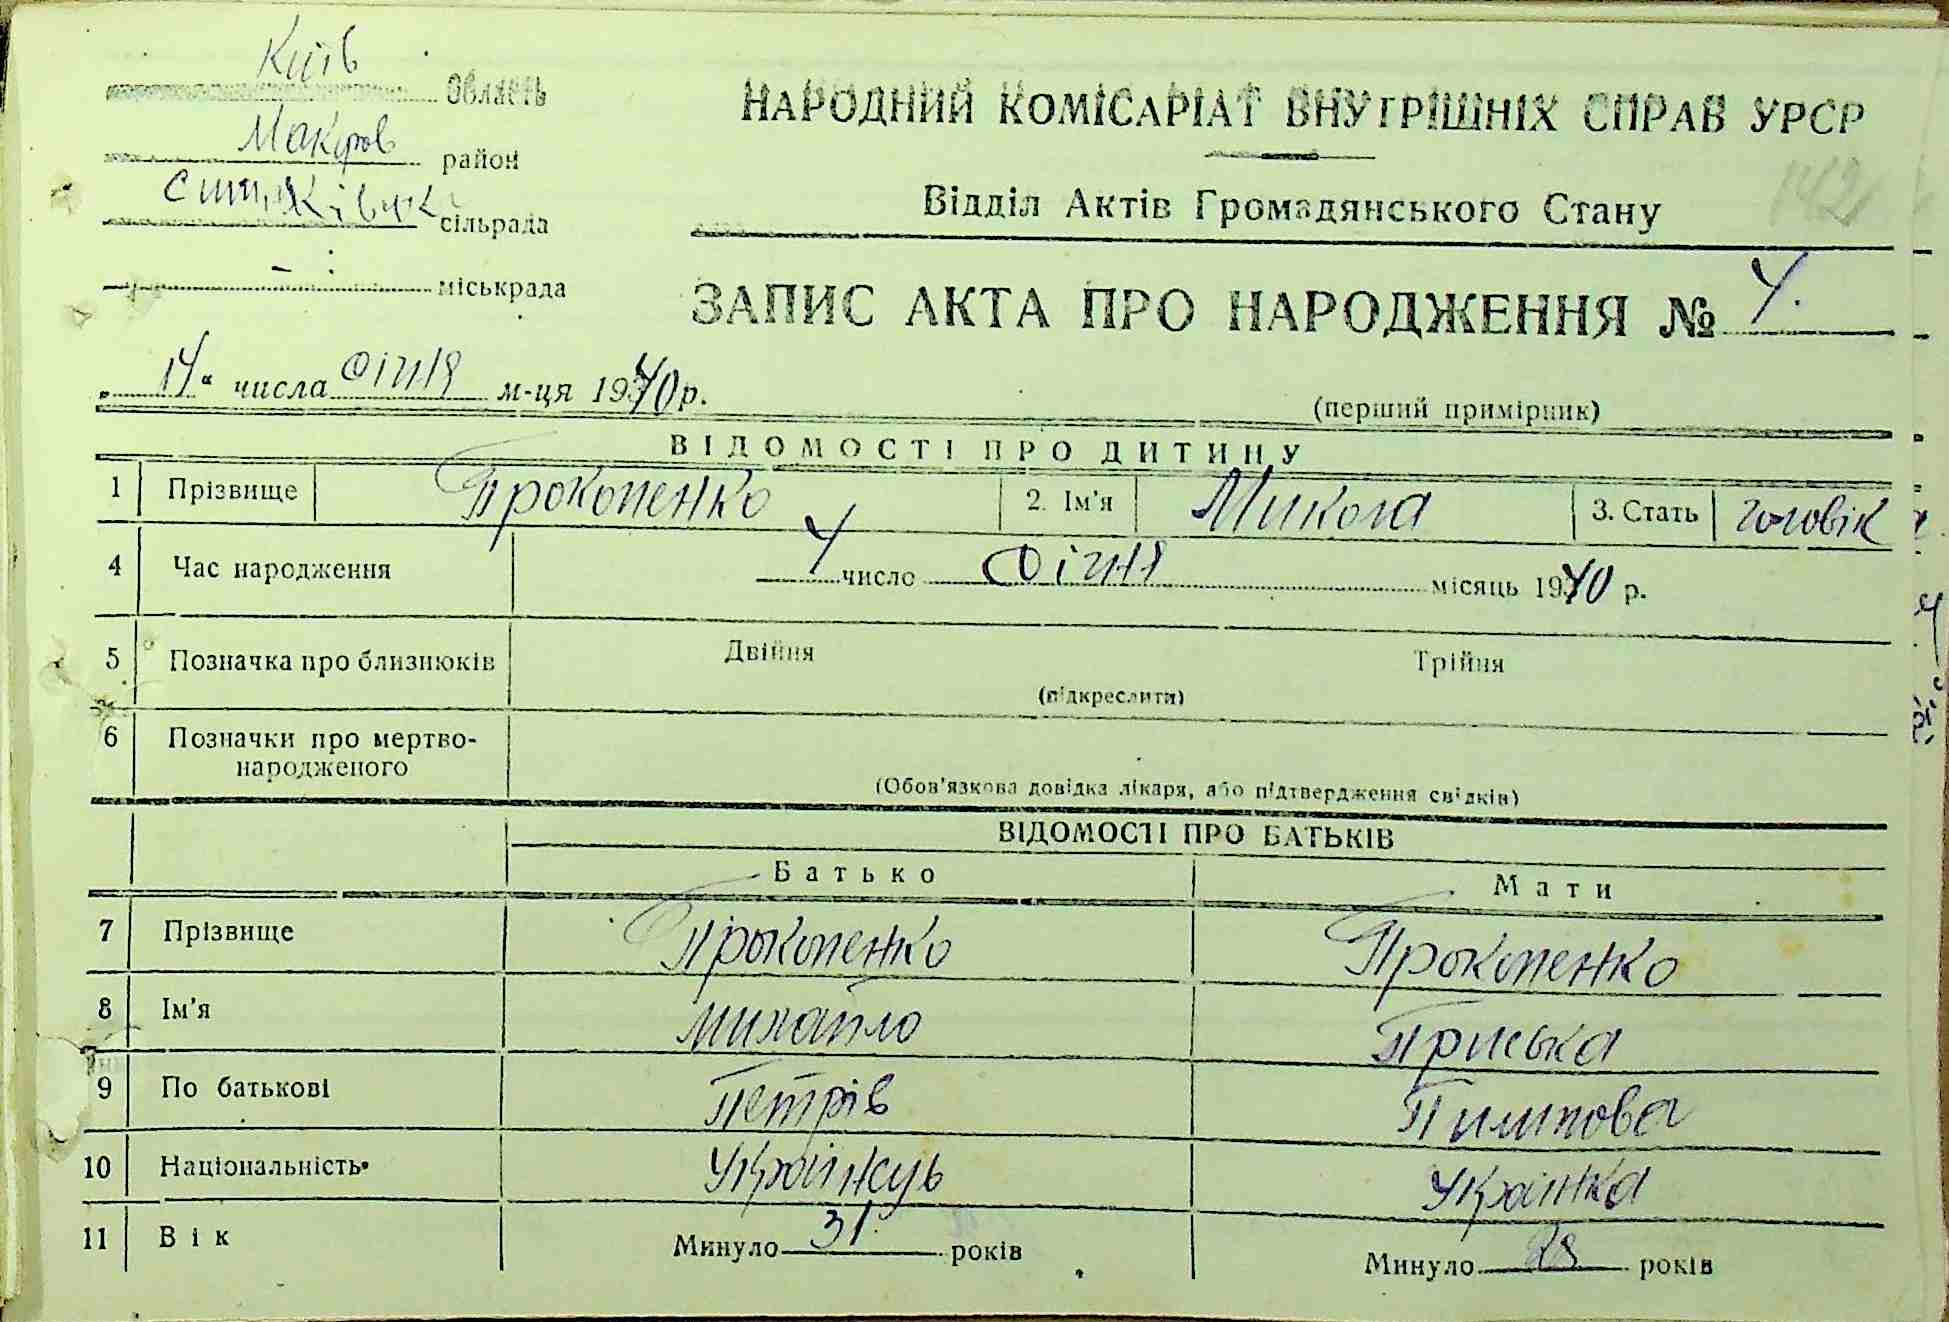 Київ Область
Макарів район
сільрада
міськрада
НАРОДНИЙ КОМІСАРІАТ ВНУТРІШНІХ СПРАВ УРСР
Відділ Актів Громадянського Стану
142
ЗАПИС АКТА ПРО НАРОДЖЕННЯ № 4.
„14“ числа січня м-ця 1940 р.
(перший примірник)
ВІДОМОСТІ ПРО ДИТИНУ
1 Прізвище Прокопенко 2. Ім'я Микола 3. Стать чоловік
4 Час народження 4 число січня місяць 1940 р.
5 Позначка про близнюків Двійня Трійня
(підкреслити)
6 Позначки про мертво-
народженого
(Обов'язкова довідка лікаря, або підтвердження свідків)
ВІДОМОСТІ ПРО БАТЬКІВ
Батько Мати
7 Прізвище Прокопенко Прокопенко
8 Ім'я Михайло Приська
9 По батькові Петрів Пилипова
10 Національність Українець Українка
11 Вік Минуло 31 років Минуло 28 років